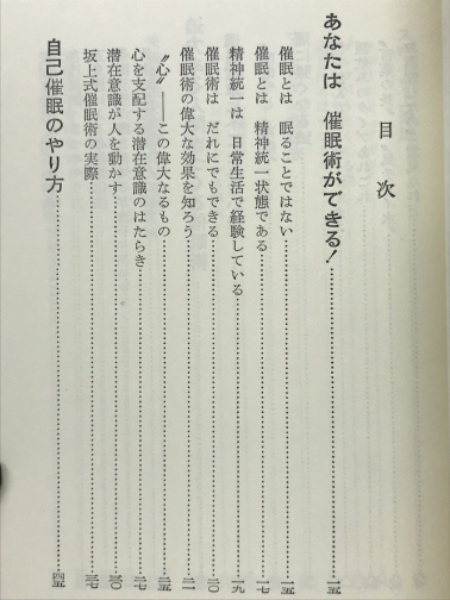 目次
あなたは 催眠術ができる!……一五
催眠とは 眠ることではない……一五
催眠とは 精神統一状態である……一七
精神統一は 日常生活で経験している……一九
催眠術は だれにでもできる……二〇
催眠術の偉大な効果を知ろう……二一
〝心〟――この偉大なるもの……二五
心を支配する潜在意識のはたらき……二七
潜在意識が人を動かす……三〇
坂上式催眠術の実際……三七
自己催眠のやり方……四五